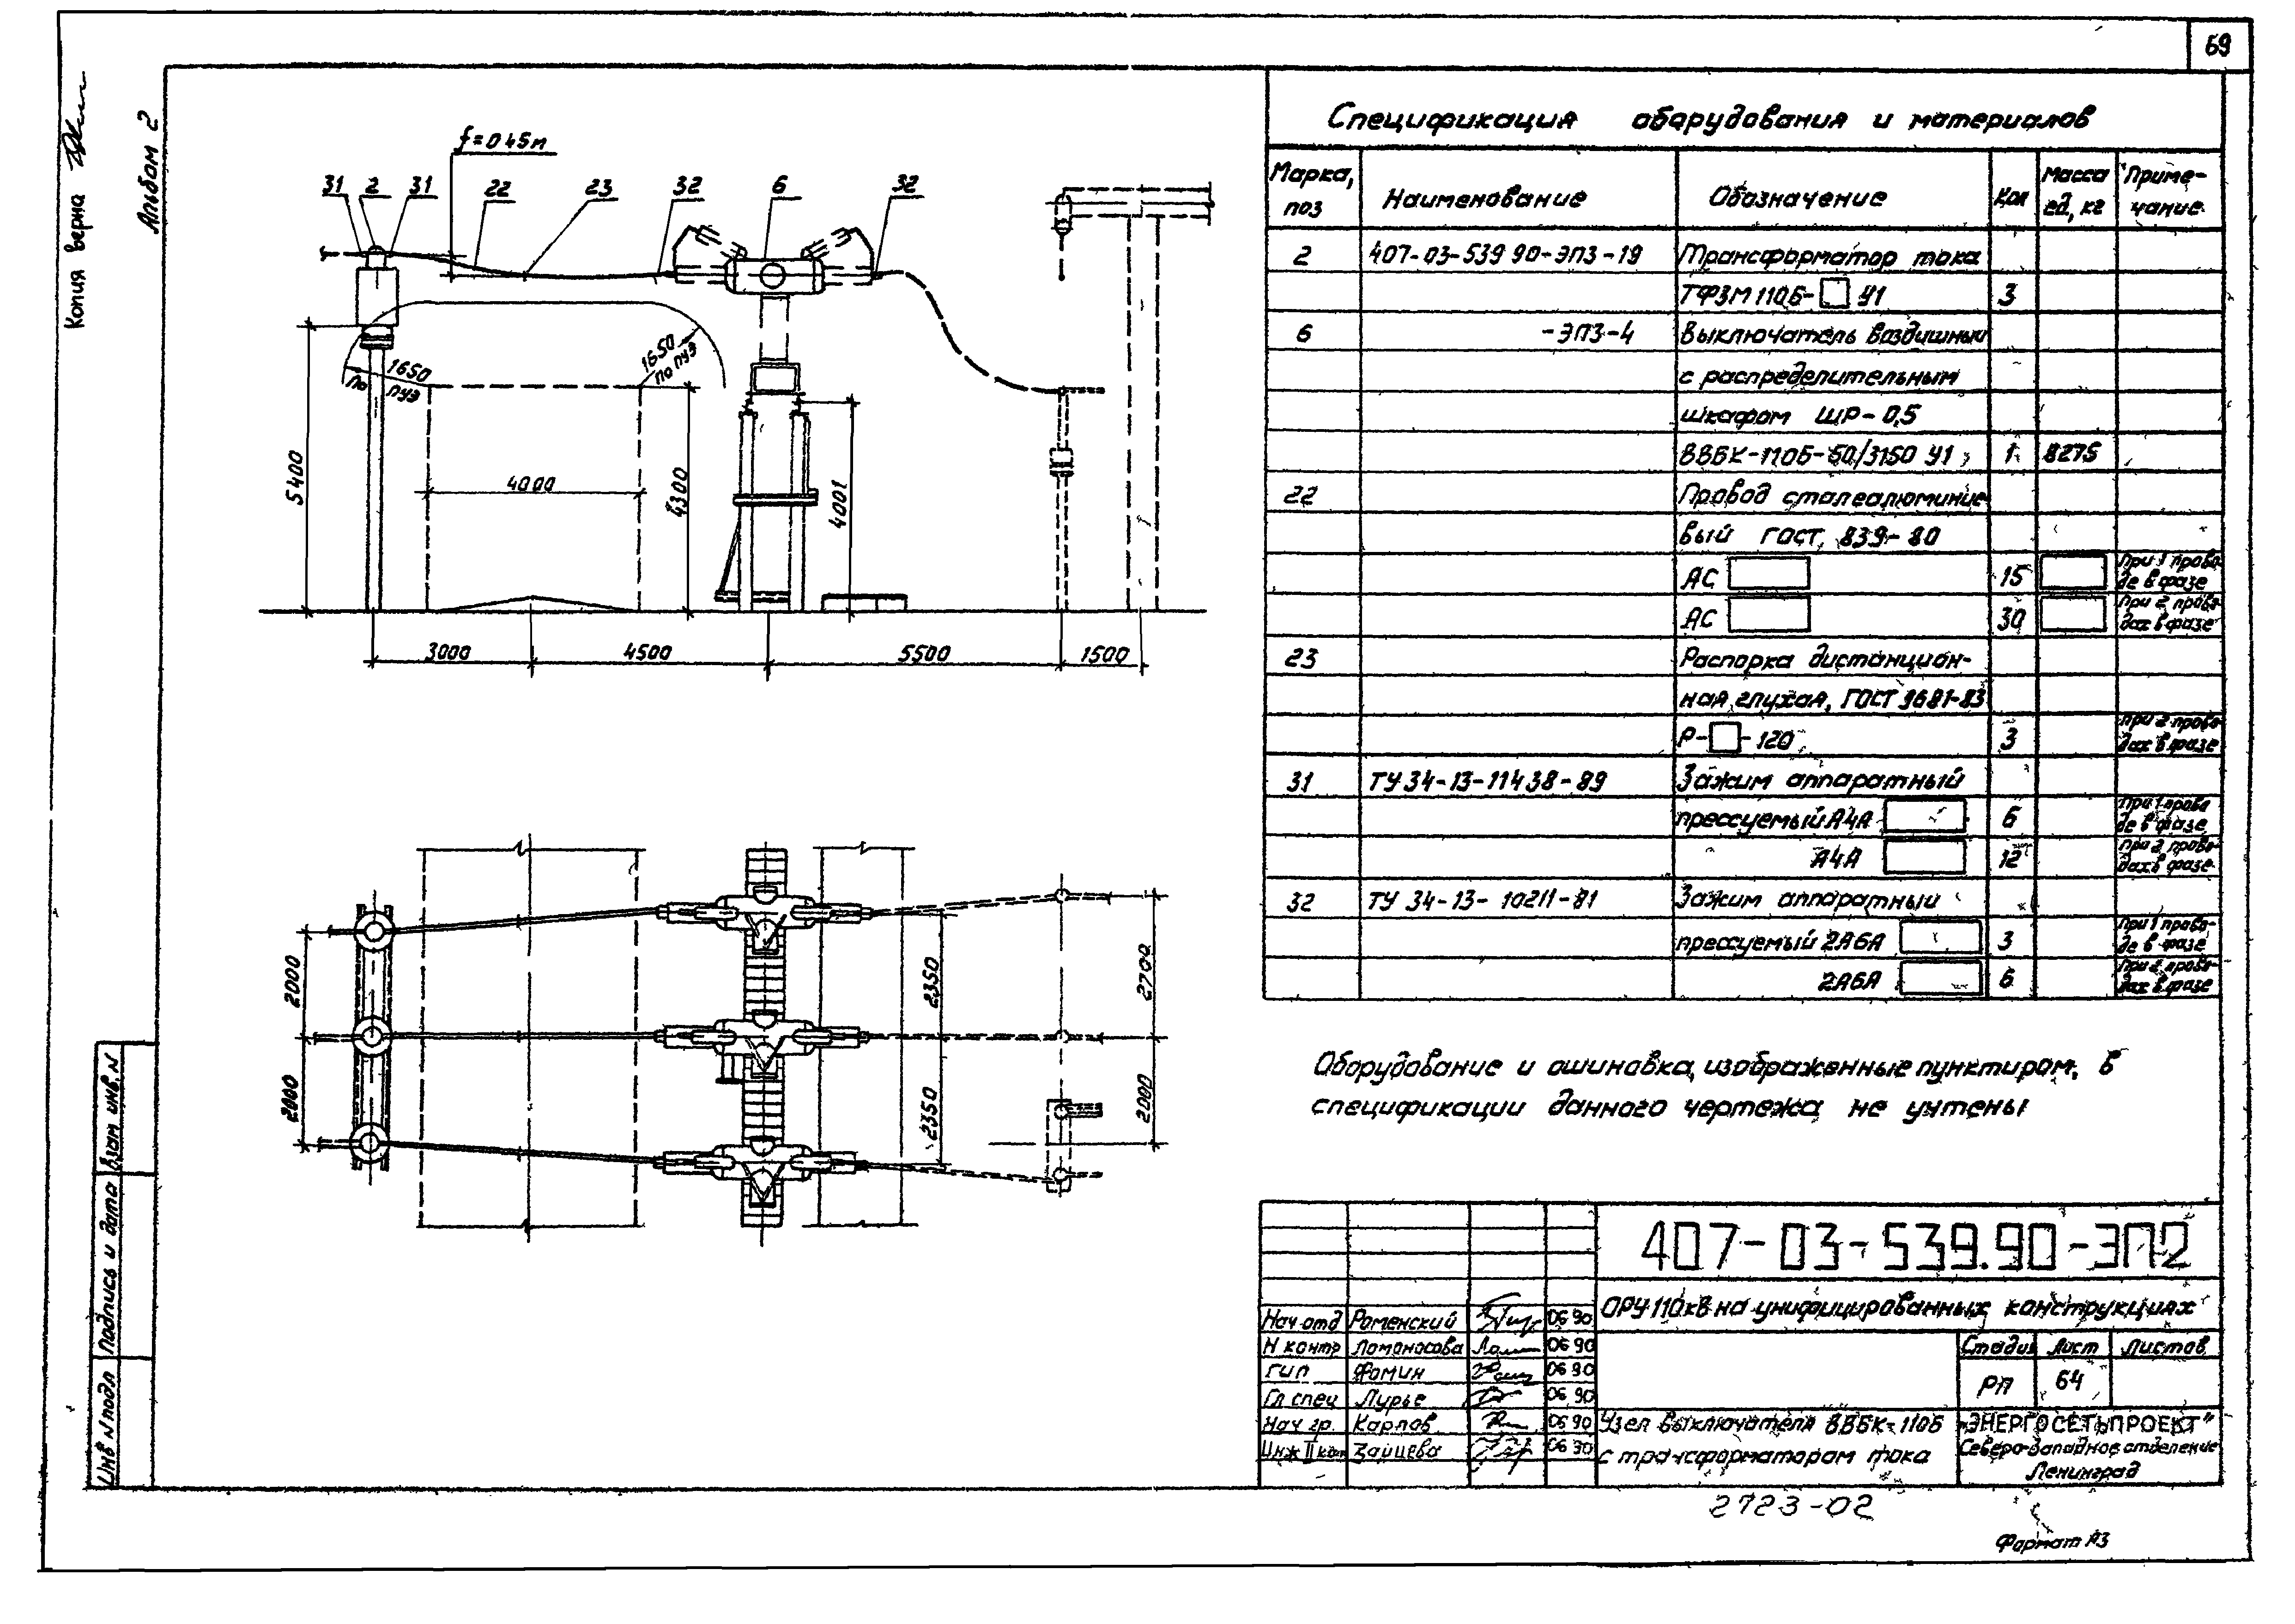 69
Копия верна
Альбом 2
f=0 45м
31 2 31 22 23 32 6 32
1650
по ПУЭ
1650
по ПУЭ
5400
4000
4300
4001
3000 4500 5500 1500
2000
2000
2350
2350
2700
2000
Спецификация оборудования и материалов
Марка, поз Наименование Обозначение Кол Масса ед, кг Примечание
2 407-03-539 90-ЭП3-19 Трансформатор тока
ТФЗМ 110Б- У1 3
6 -ЭП3-4 Выключатель воздушный
с распределительным
шкафом ШР-0,5
ВВБК-110Б-50/3150 У1 1 8275
22 Провод сталеалюминие
вый ГОСТ, 839-80
АС 15 При 1 прово-де в фазе
АС 30 При 2 прово-дах в фазе
23 Распорка дистанцион-
ная глухая, ГОСТ 9681-83
Р- -120 3 При 2 прово-дах в фазе
31 ТУ 34-13-11438-89 Зажим аппаратный
прессуемый А4А 6 При 1 прово де в фазе
А4А 12 При 2 прово-дах в фазе
32 ТУ 34-13-10211-81 Зажим аппаратный
прессуемый 2А6А 3 При 1 прово-де в фазе
2А6А 6 При 2 прово-дах в фазе
Оборудование и ошиновка, изображенные пунктиром, в
спецификации данного чертежа не учтены
407-03-539.90-ЭП2
ОРУ 110кВ на унифицированных конструкциях
Нач отд Роменский 06 90
Н контр Ломоносова 06 90
ГИП Фомин 06 90
Гл спец Лурье 06,90
Нач гр. Карпов 06 90
Инж II кат Зайцева 06 90
Стадия Лист Листов
РП 64
Узел выключателя ВВБК-110Б
с трансформатором тока
"ЭНЕРГОСЕТЬПРОЕКТ"
Северо-Западное отделение
Ленинград
Взам инв. N
Подпись и дата
Инв N подл
2723-02
Формат А3